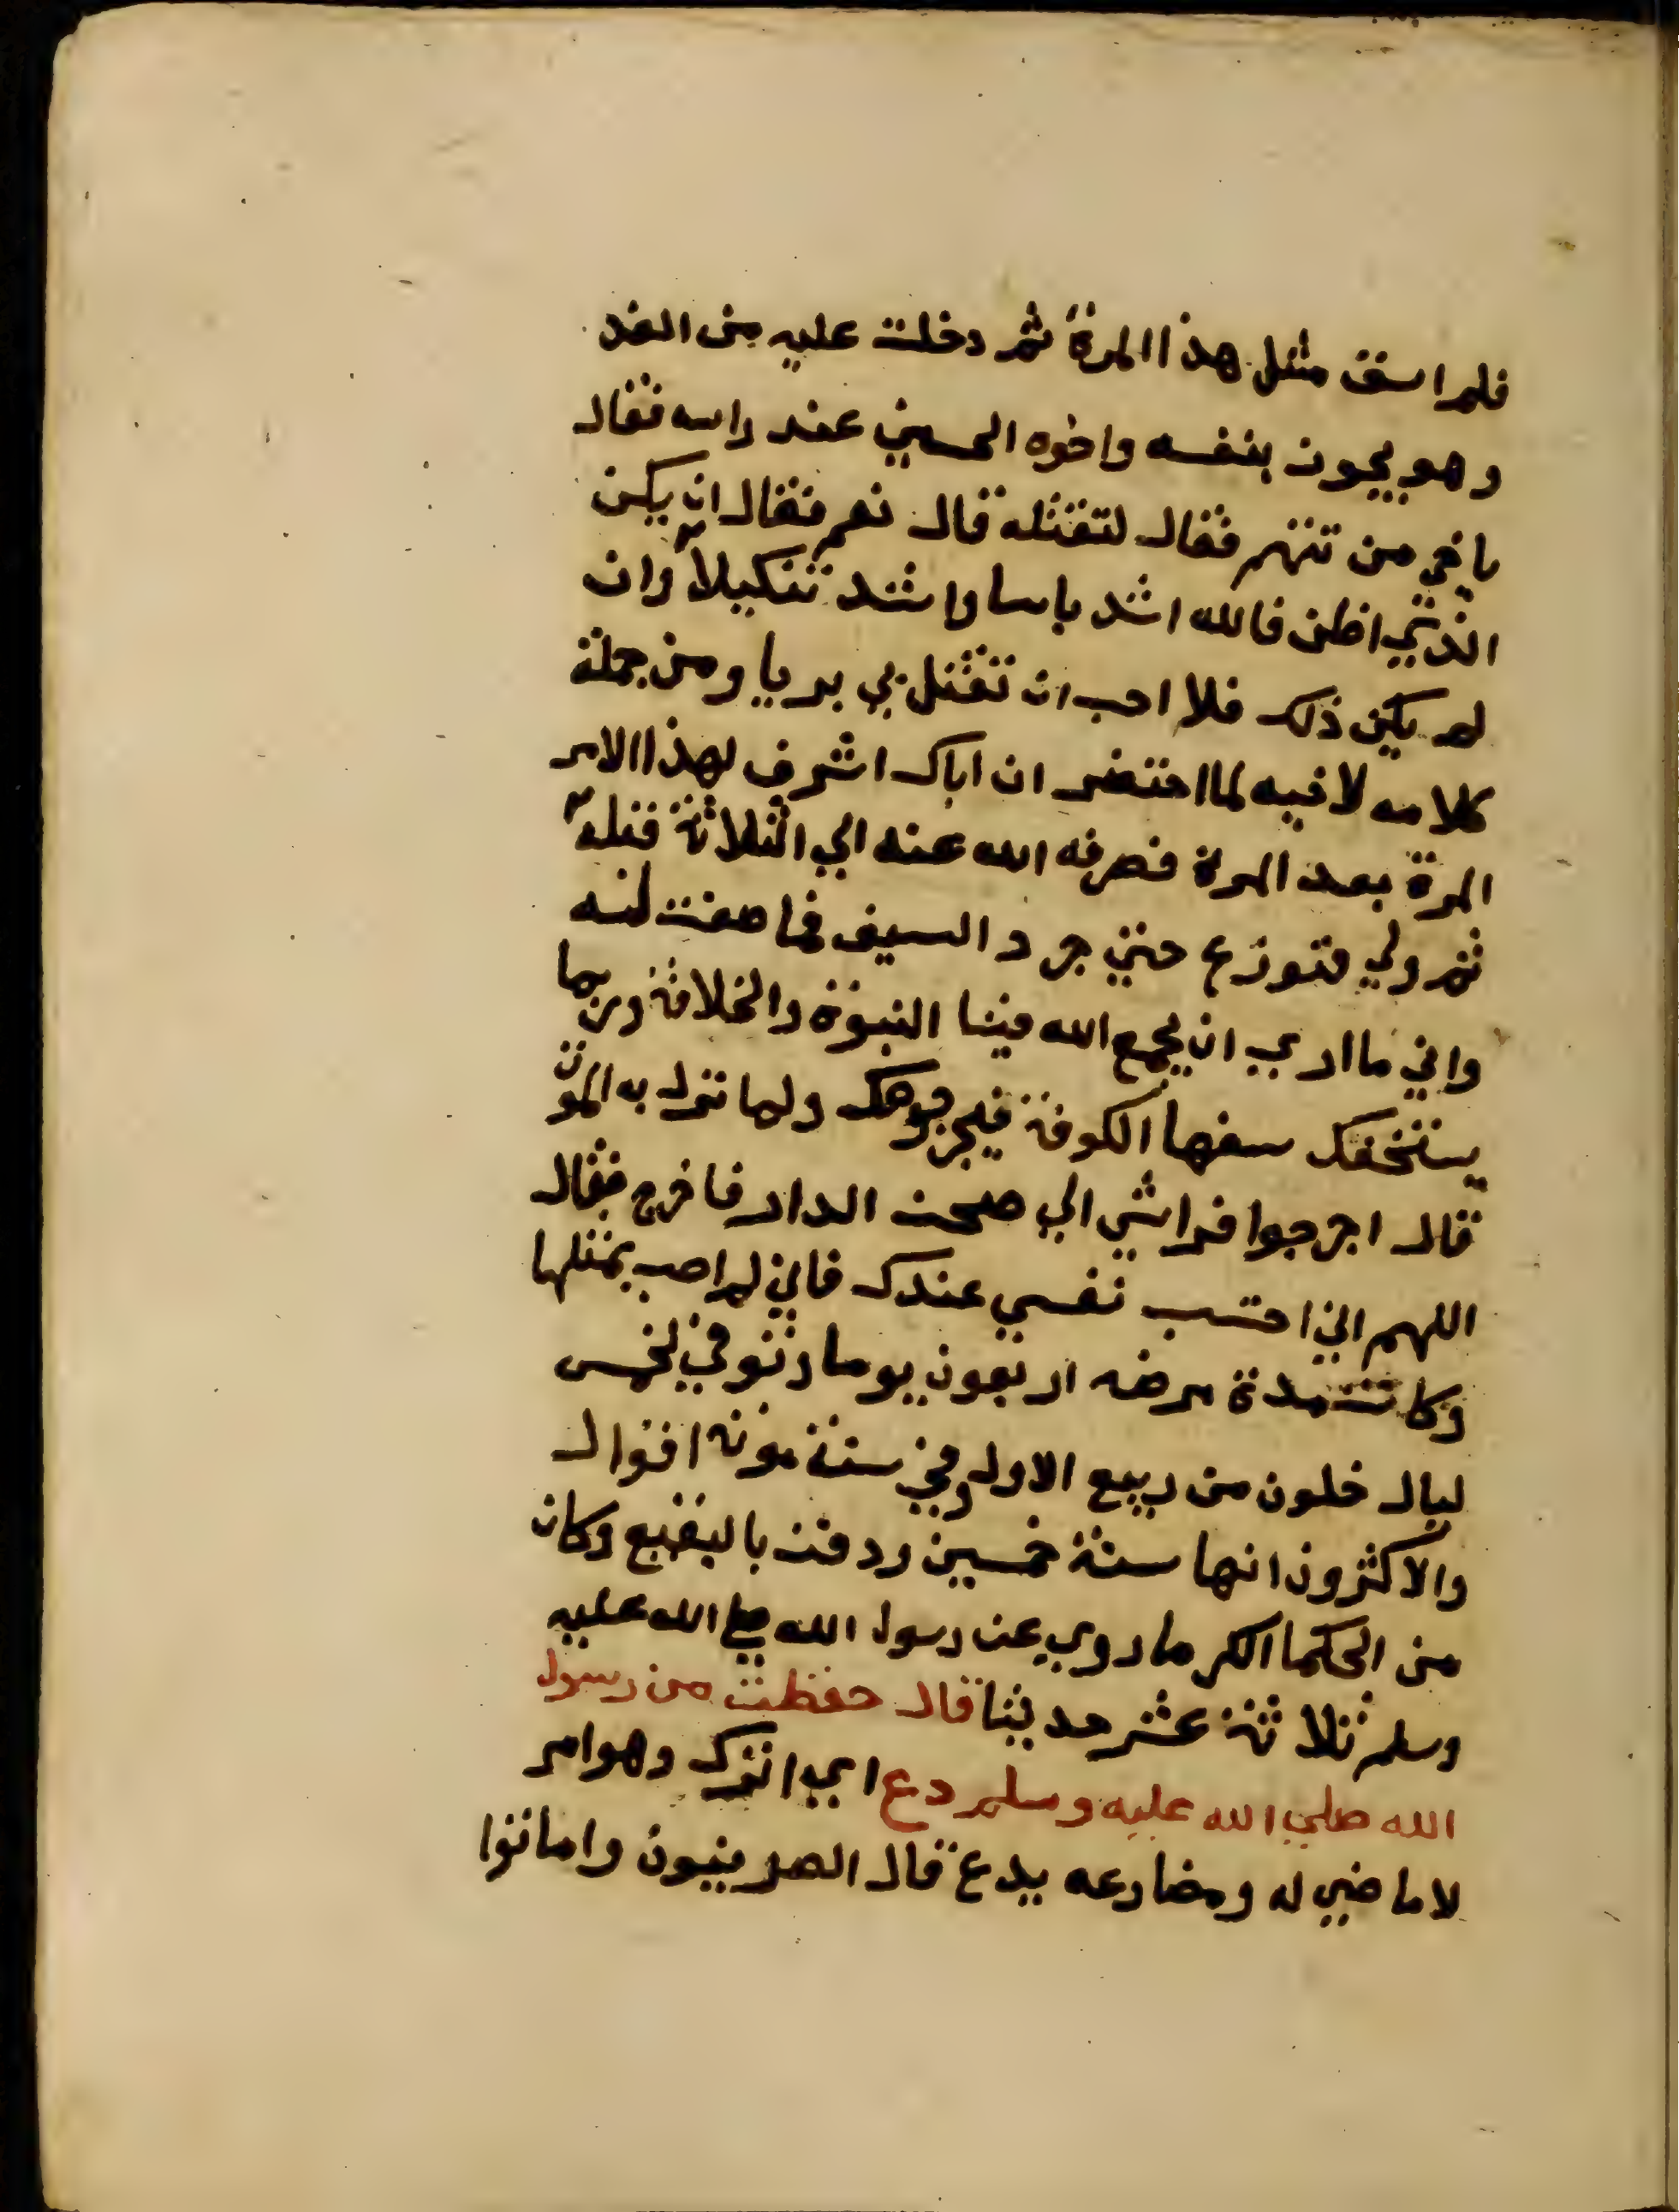 فلم اسق مثل هذا المرة ثم دخلت عليه من الغد
وهو يجود بنفسه واخوه الحسين عند راسه فقال
يا اخي من تتهم فقال لتقتله قال نعم فقال ان يكن
الذي اظن فالله اشد باسا واشد تنكيلا وان
لم يكن ذلك فلا احب ان تقتل بي بريا ومن جملة
كلامه لاخيه لما احتضر ان اباك اشرف لهذا الامر
المرة بعد المرة فصرفه الله عنه الي الثلاثة قبله
ثم ولي فتوزع حتي جرد السيف فما صفت له
واني ما اري ان يجمع الله فينا النبوة والخلافة وربما
يستخفك سفها الكوفة فيخرجوك ولما نزل به الموت
قال اخرجوا فراشي الي صحن الدار فاخرج فقال
اللهم اني احتسب نفسي عندك فاني لم اصب بمثلها
وكانت مدة مرضه اربعون يوما وتوفي لخمس
ليال خلون من ربيع الاول وفي سنة موته اقوال
والاكثرون انها سنة خمسين ودفن بالبقيع وكان
من الحكما الكرما روي عن رسول الله صلي الله عليه
وسلم ثلاثة عشر حديثا قال حفظت من رسول
الله صلي الله عليه وسلم دع اي اترك وهو امر
لا ماضي له ومضارعه يدع قال الصرفيون واماتوا